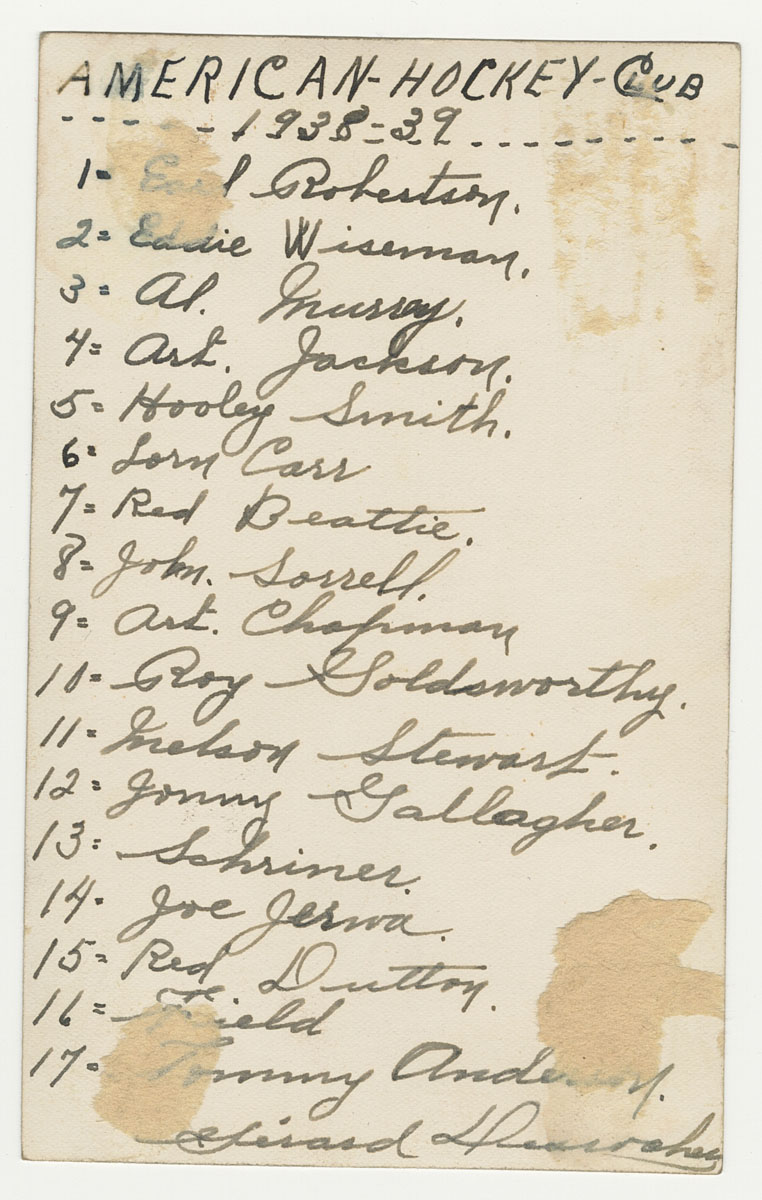 AMERICAN-HOCKEY-CLUB
- - - - - 1938=39 - - - - - - - - -
1= Earl Robertson.
2= Eddie Wiseman.
3= Al. Murray.
4= Art. Jackson.
5= Hooley Smith.
6= Lorn Carr
7= Red Beattie.
8= John. Sorrell.
9= Art. Chapman
10= Roy Goldsworthy.
11= Nelson Stewart.
12= Jonny Gallagher.
13= Schriner.
14= Joe Jerwa.
15= Red Dutton.
16= Field
17= Tommy Anderson.
Gérard